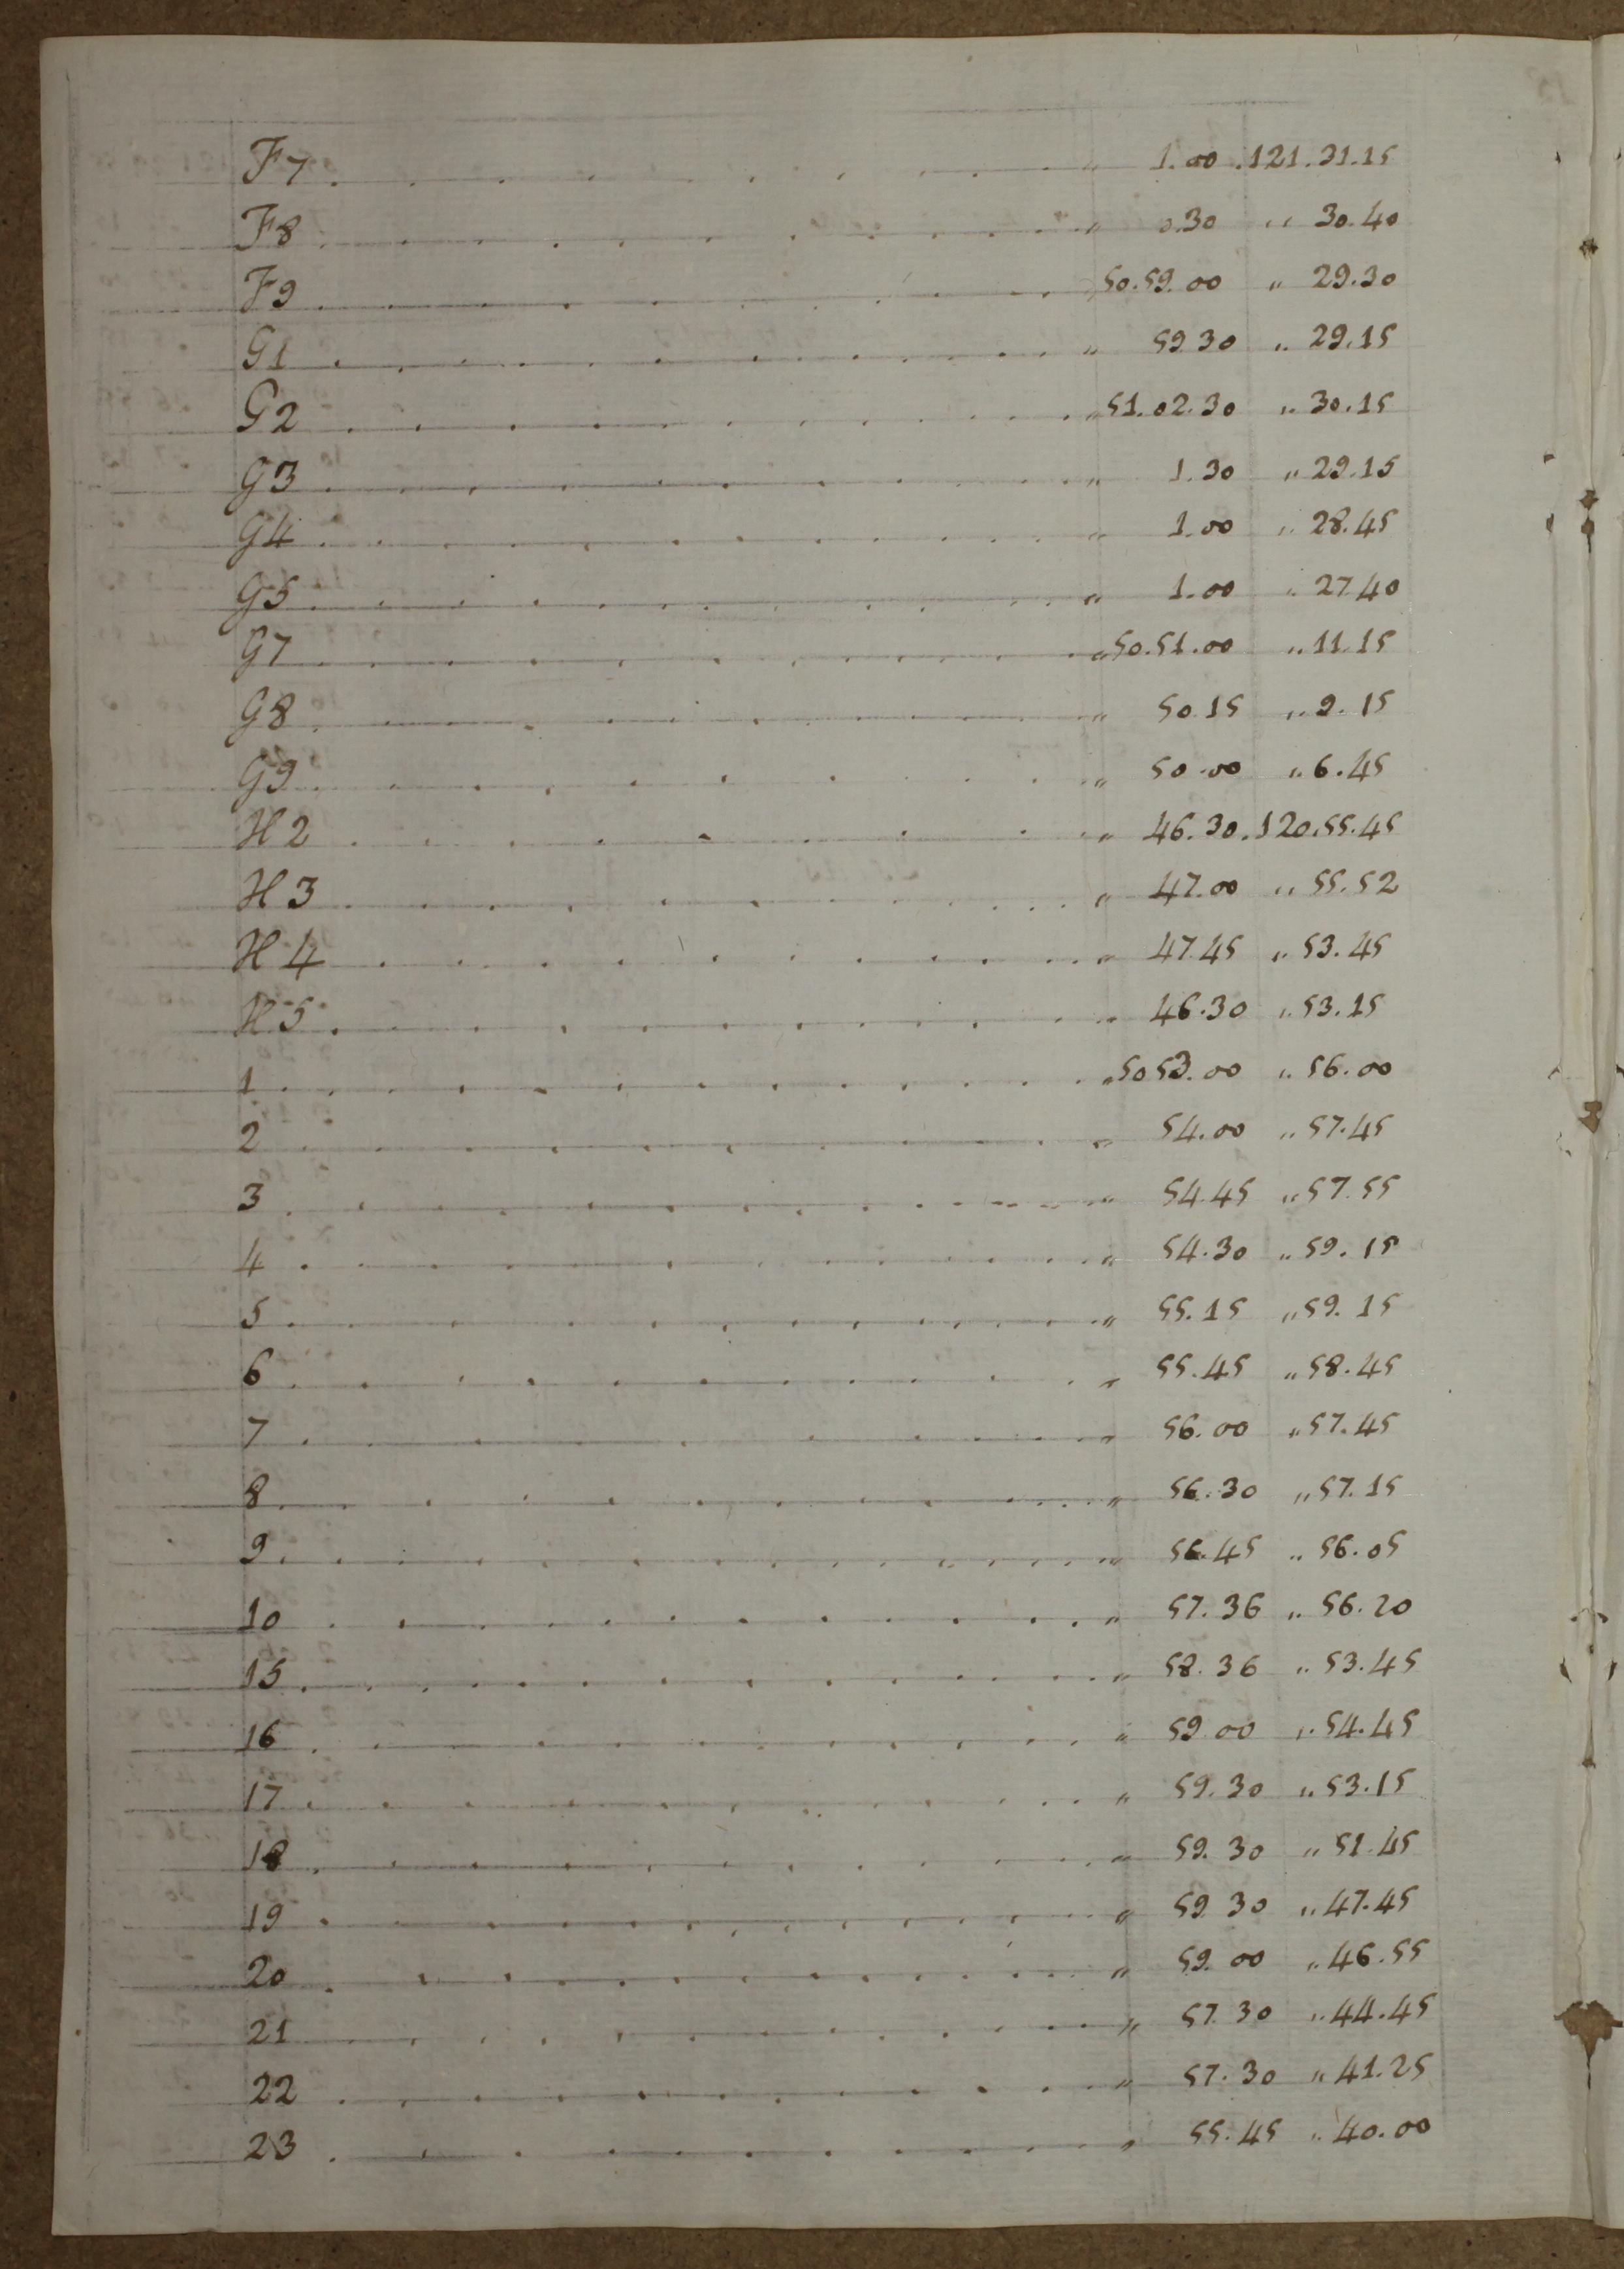 F7 . . . . . . . . . „ 1.00 . 121.31.15
F8 . . . . . . . . . „ 0.30 „ 30.40
F9 . . . . . . . . . 50.59.00 „ 29.30
G1 . . . . . . . . . „ 59 30 „ 29.15
G2 . . . . . . . . . „ 51.02.30 „ 30.15
G3 . . . . . . . . . „ 1.30 „ 29.15
G4 . . . . . . . . . „ 1.00 „ 28.45
G5 . . . . . . . . . „ 1.00 „ 27 40
G7 . . . . . . . . . „ 50.51.00 „ 11.15
G8 . . . . . . . . . „ 50.15 „ 9.15
G9 . . . . . . . . . „ 50.00 „ 6.45
H2 . . . . . . . . . „ 46.30 . 120.55.45
H3 . . . . . . . . . „ 47.00 „ 55.52
H4 . . . . . . . . . „ 47.45 „ 53.45
H5 . . . . . . . . . „ 46.30 „ 53.15
1 . . . . . . . . . „ 50 53.00 „ 56.00
2 . . . . . . . . . „ 54.00 „ 57.45
3 . . . . . . . . . „ 54.45 „ 57.55
4 . . . . . . . . . „ 54.30 „ 59.15
5 . . . . . . . . . „ 55.15 „ 59.15
6 . . . . . . . . . „ 55.45 „ 58.45
7 . . . . . . . . . „ 56.00 „ 57.45
8 . . . . . . . . . „ 56.30 „ 57.15
9 . . . . . . . . . „ 56.45 „ 56.05
10 . . . . . . . . . „ 57.36 „ 56.20
15 . . . . . . . . . „ 58.36 „ 53.45
16 . . . . . . . . . „ 59 00 „ 54.45
17 . . . . . . . . . „ 59.30 „ 53.15
18 . . . . . . . . . „ 59.30 „ 51.45
19 . . . . . . . . . „ 59 30 „ 47.45
20 . . . . . . . . . „ 59.00 „ 46.55
21 . . . . . . . . . „ 57.30 „ 44.45
22 . . . . . . . . . „ 57.30 „ 41.25
23 . . . . . . . . . „ 55.45 „ 40.00